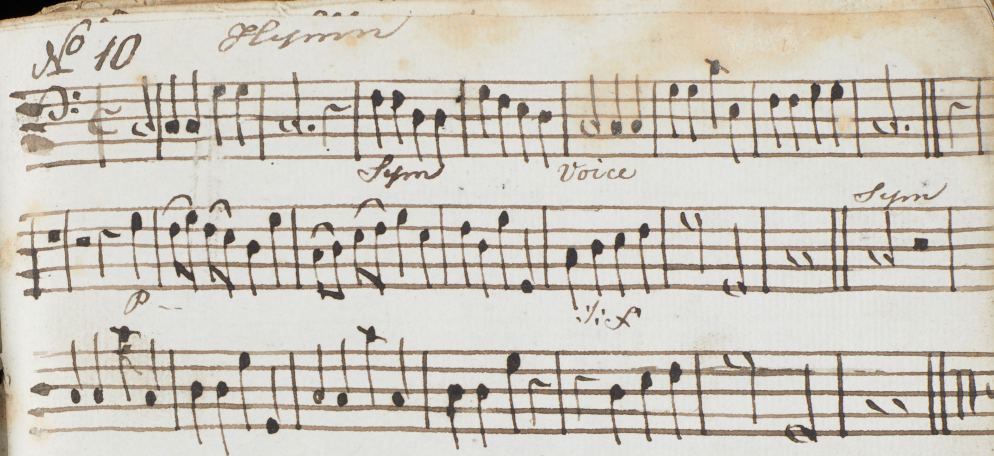 No 10 Hymn
Sym Voice
Sym
P